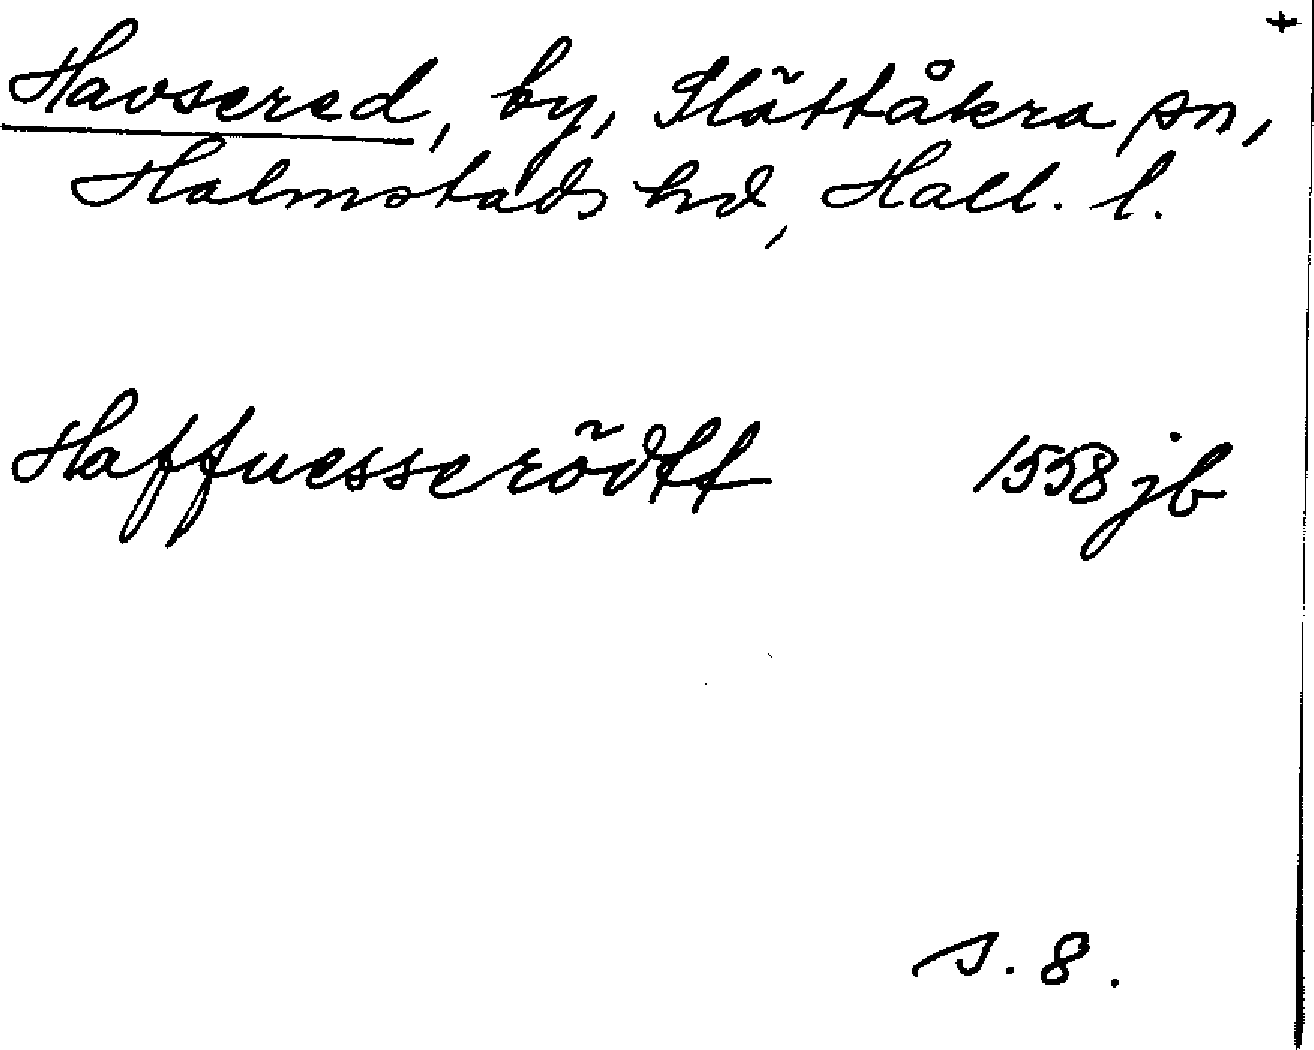 +
Havsered, by, Slättåkra sn,
Halmstads hd, Hall. l.
Haffuesserödtt 1558 jb
s. 8.